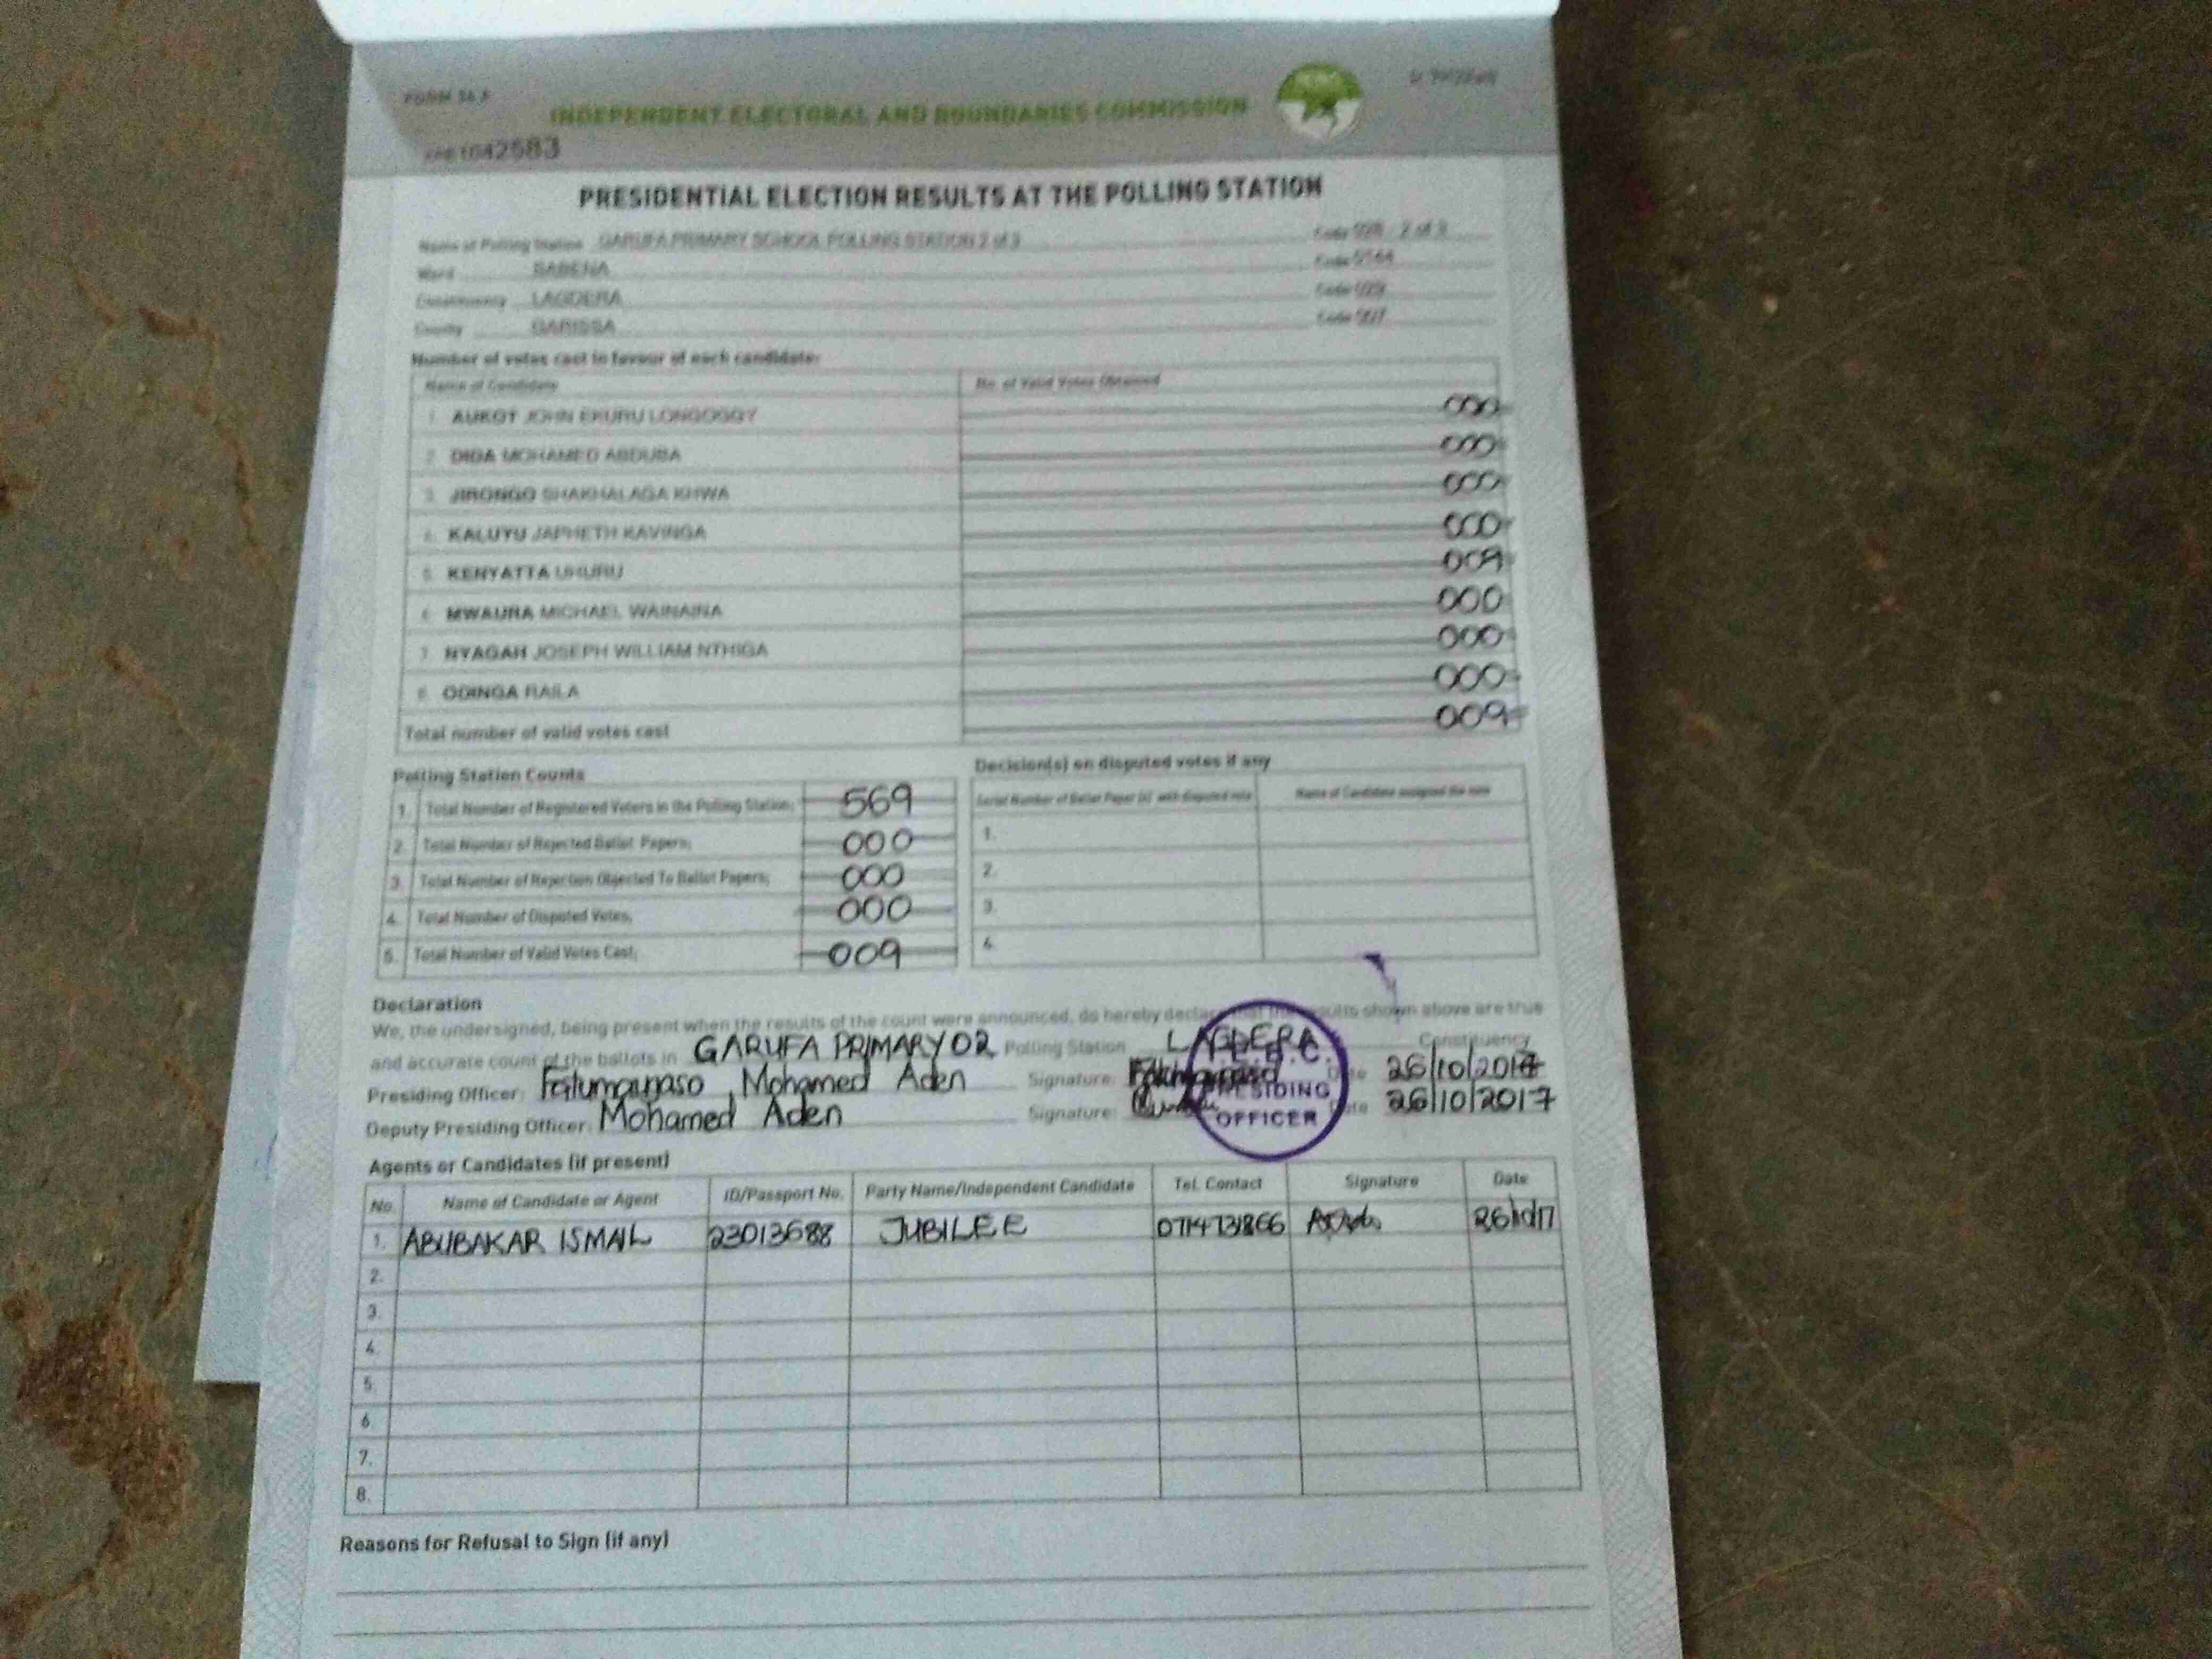 FORM 34 A
INDEPENDENT ELECTORAL AND BOUNDARIES COMMISSION
1042583
PRESIDENTIAL ELECTION RESULTS AT THE POLLING STATION
Name of Polling Station GARUFA PRIMARY SCHOOL POLLING STATION 2 of 3 Code 2 of 3
Ward SABENA Code
Constituency LAGDERA Code
County GARISSA Code
Number of votes cast in favour of each candidate:
Name of Candidate No. of Valid Votes Obtained
1. AUKOT JOHN EKURU LONGOGGY 000
2. DIDA MOHAMED ABDUBA 000
3. JIRONGO SHAKHALAGA KHWA 000
4. KALUYU JAPHETH KAVINGA 000
5. KENYATTA UHURU 009
6. MWAURA MICHAEL WAINAINA 000
7. NYAGAH JOSEPH WILLIAM NTHIGA 000
8. ODINGA RAILA 000
Total number of valid votes cast 009
Polling Station Counts
1. Total Number of Registered Voters in the Polling Station; 569
2. Total Number of Rejected Ballot Papers; 000
3. Total Number of Rejection Objected To Ballot Papers; 000
4. Total Number of Disputed Votes; 000
5. Total Number of Valid Votes Cast; 009
Decision(s) on disputed votes if any
Serial Number of Ballot Paper (s) with disputed vote Name of Candidate assigned the vote
1.
2.
3.
4.
Declaration
We, the undersigned, being present when the results of the count were announced, do hereby declare that the results shown above are true
and accurate count of the ballots in GARUFA PRIMARY 02 Polling Station LAGDERA Constituency
Presiding Officer: Mohamed Aden Signature: Date 26/10/2017
Deputy Presiding Officer: Mohamed Aden Signature: Date 26/10/2017
I.E.B.C.
PRESIDING
OFFICER
Agents or Candidates (if present)
No. Name of Candidate or Agent ID/Passport No. Party Name/Independent Candidate Tel. Contact Signature Date
1. ABUBAKAR ISMAIL 23013688 JUBILEE 0714731866 26/10/17
2.
3.
4.
5.
6.
7.
8.
Reasons for Refusal to Sign (if any)